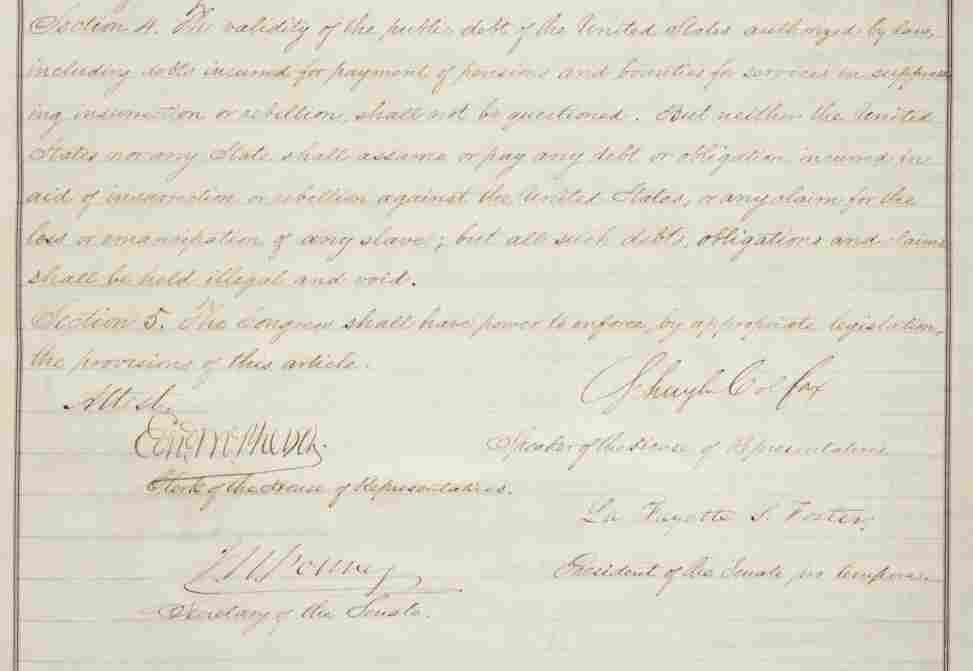 Section 4. The validity of the public debt of the United States authorized by law,
including debts incurred for payment of pensions and bounties for services in suppress
ing insurrection or rebellion, shall not be questioned. But neither the United
States nor any State shall assume or pay any debt or obligation incurred in
aid of insurrection or rebellion against the United States, or any claim for the
loss or emancipation of any slave; but all such debts, obligations and claims
shall be held illegal and void.
Section 5. The Congress shall have power to enforce, by appropriate legislation,
the provisions of this article.
Schuyler Colfax
Attest.
Edw. McPherson.
Speaker of the House of Representatives.
Clerk of the House of Representatives.
La Fayette S. Foster,
J W Forney
President of the Senate pro tempore.
Secretary of the Senate.